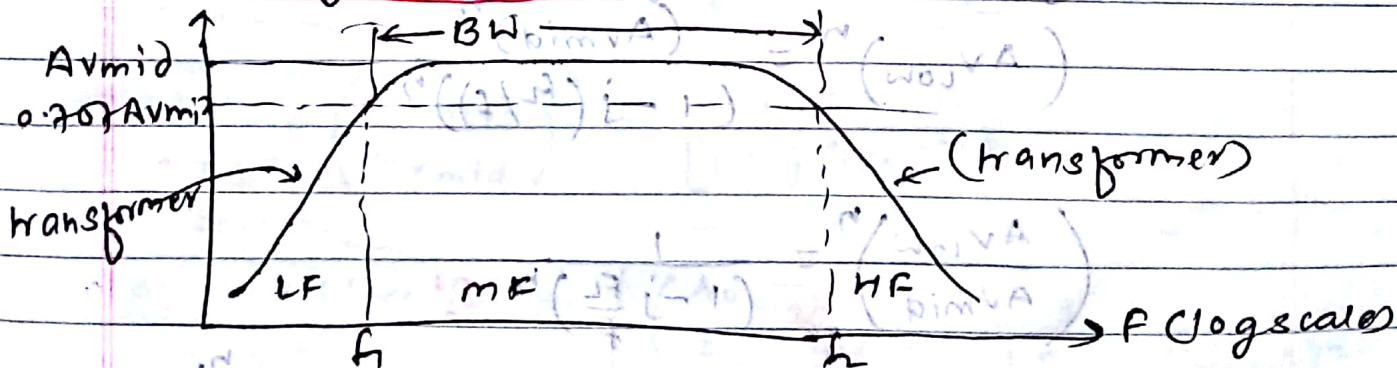 BW
Avmid
0.707 Avmi
(transformer)
transformer
LF MF HF
f1 f2 F (logscale)